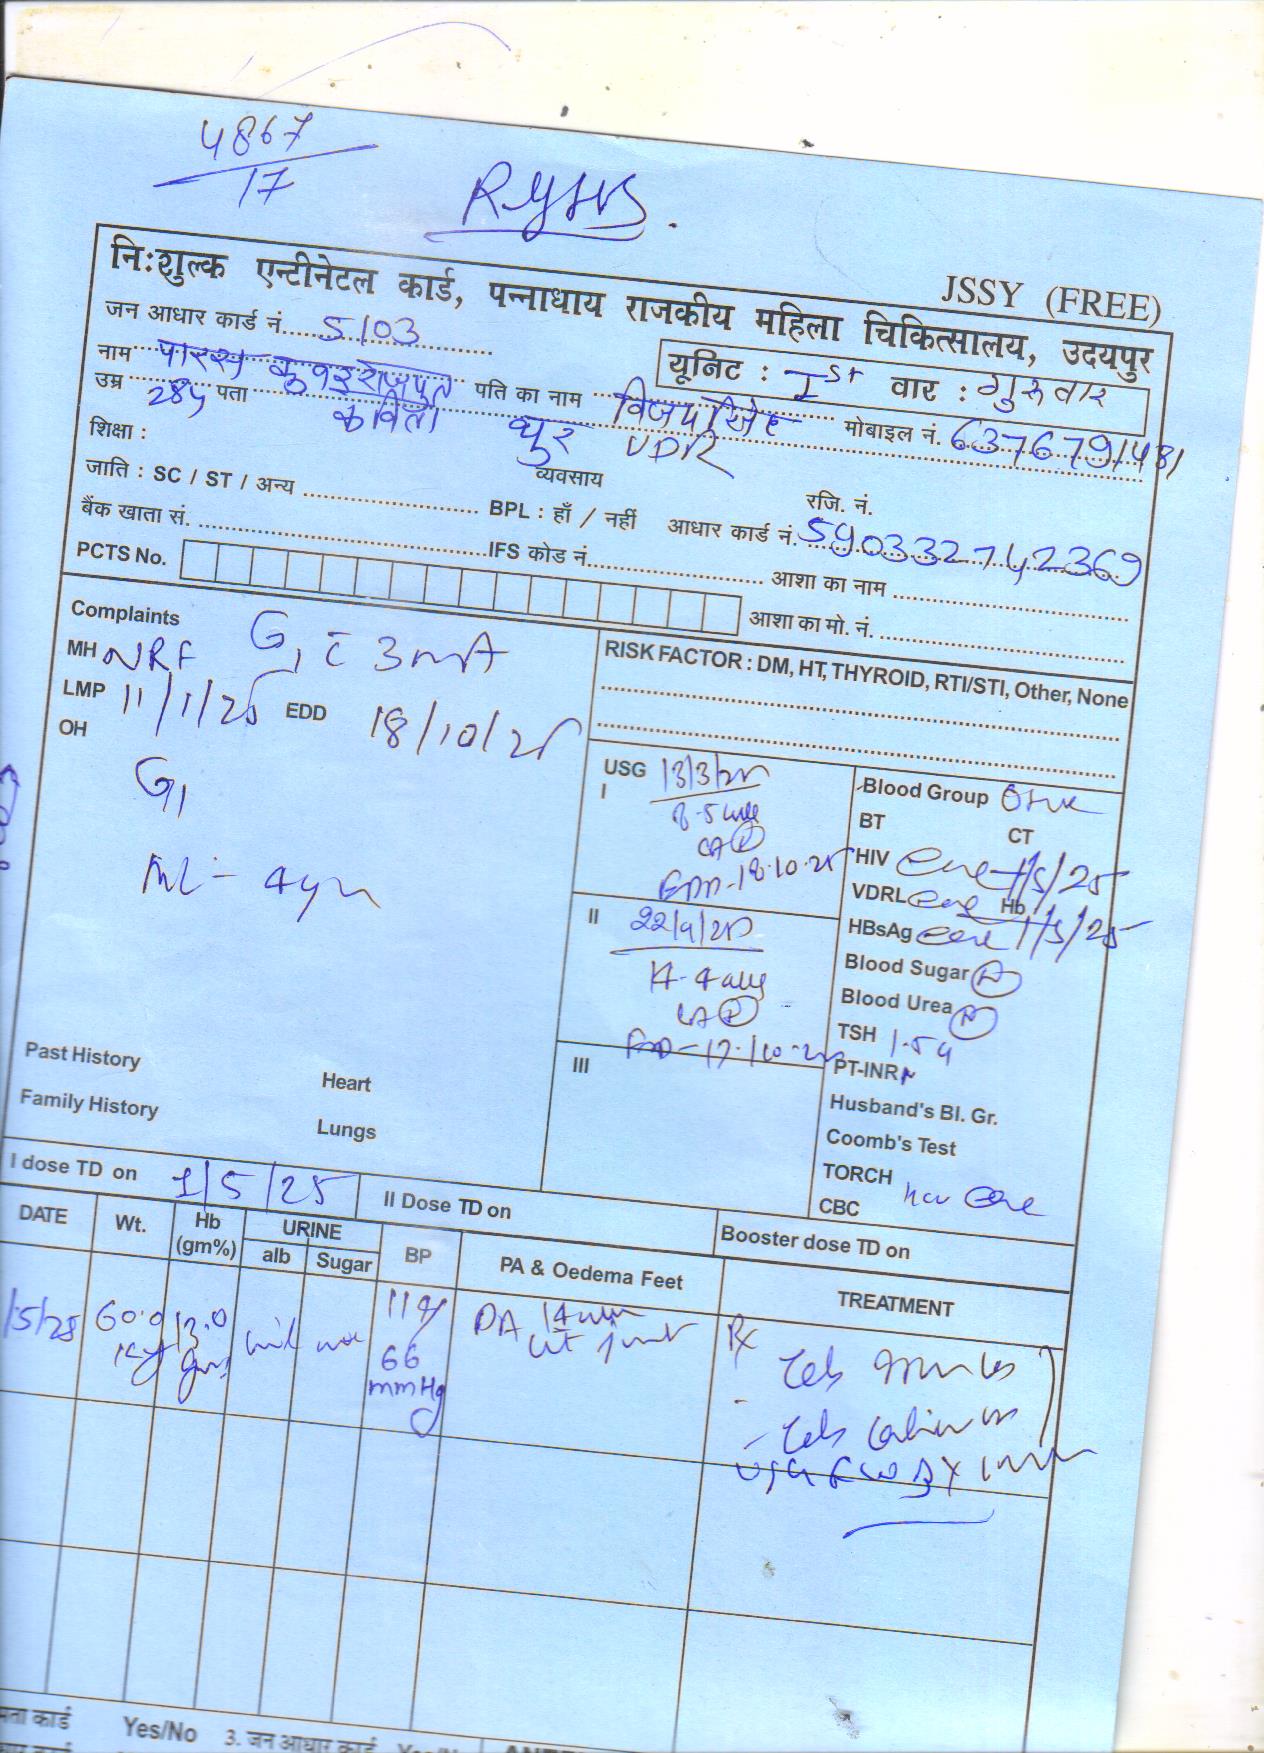 4867
17
RGHS.
JSSY (FREE)
नि:शुल्क एन्टीनेटल कार्ड, पन्नाधाय राजकीय महिला चिकित्सालय, उदयपुर
जन आधार कार्ड नं. 5103
यूनिट : Ist वार : गुरुवार
नाम पारस कुवर राजपुत पति का नाम विजयसिंह मोबाइल नं. 6376791481
उम्र 28y पता कविता UDR
शिक्षा : व्यवसाय रजि. नं.
जाति : SC / ST / अन्य BPL : हाँ / नहीं आधार कार्ड नं. 590332742369
बैंक खाता सं. IFS कोड नं. आशा का नाम
PCTS No. आशा का मो. नं.
Complaints G1 c̄ 3 mA
MH NRF
LMP 11/1/25 EDD 18/10/25
OH
G1
ML - 4yr
Past History Heart
Family History Lungs
RISK FACTOR : DM, HT, THYROID, RTI/STI, Other, None
USG
I 13/3/25
8.5
EDD-18.10.25
II 22/4/25
14.4
EDD-17/10-25
III
Blood Group
BT CT
HIV 1/5/25
VDRL Hb
HBsAg 1/5/25
Blood Sugar N
Blood Urea N
TSH 1.54
PT-INR
Husband's Bl. Gr.
Coomb's Test
TORCH HCV
CBC
I dose TD on 1/5/25 II Dose TD on Booster dose TD on
DATE Wt. Hb (gm%) URINE alb Sugar BP PA & Oedema Feet TREATMENT
1/5/25 60.0 Kg 13.0 gm nil 66 mmHg PA 14 Rx
Tab
Tab
मता कार्ड Yes/No 3. जन आधार कार्ड